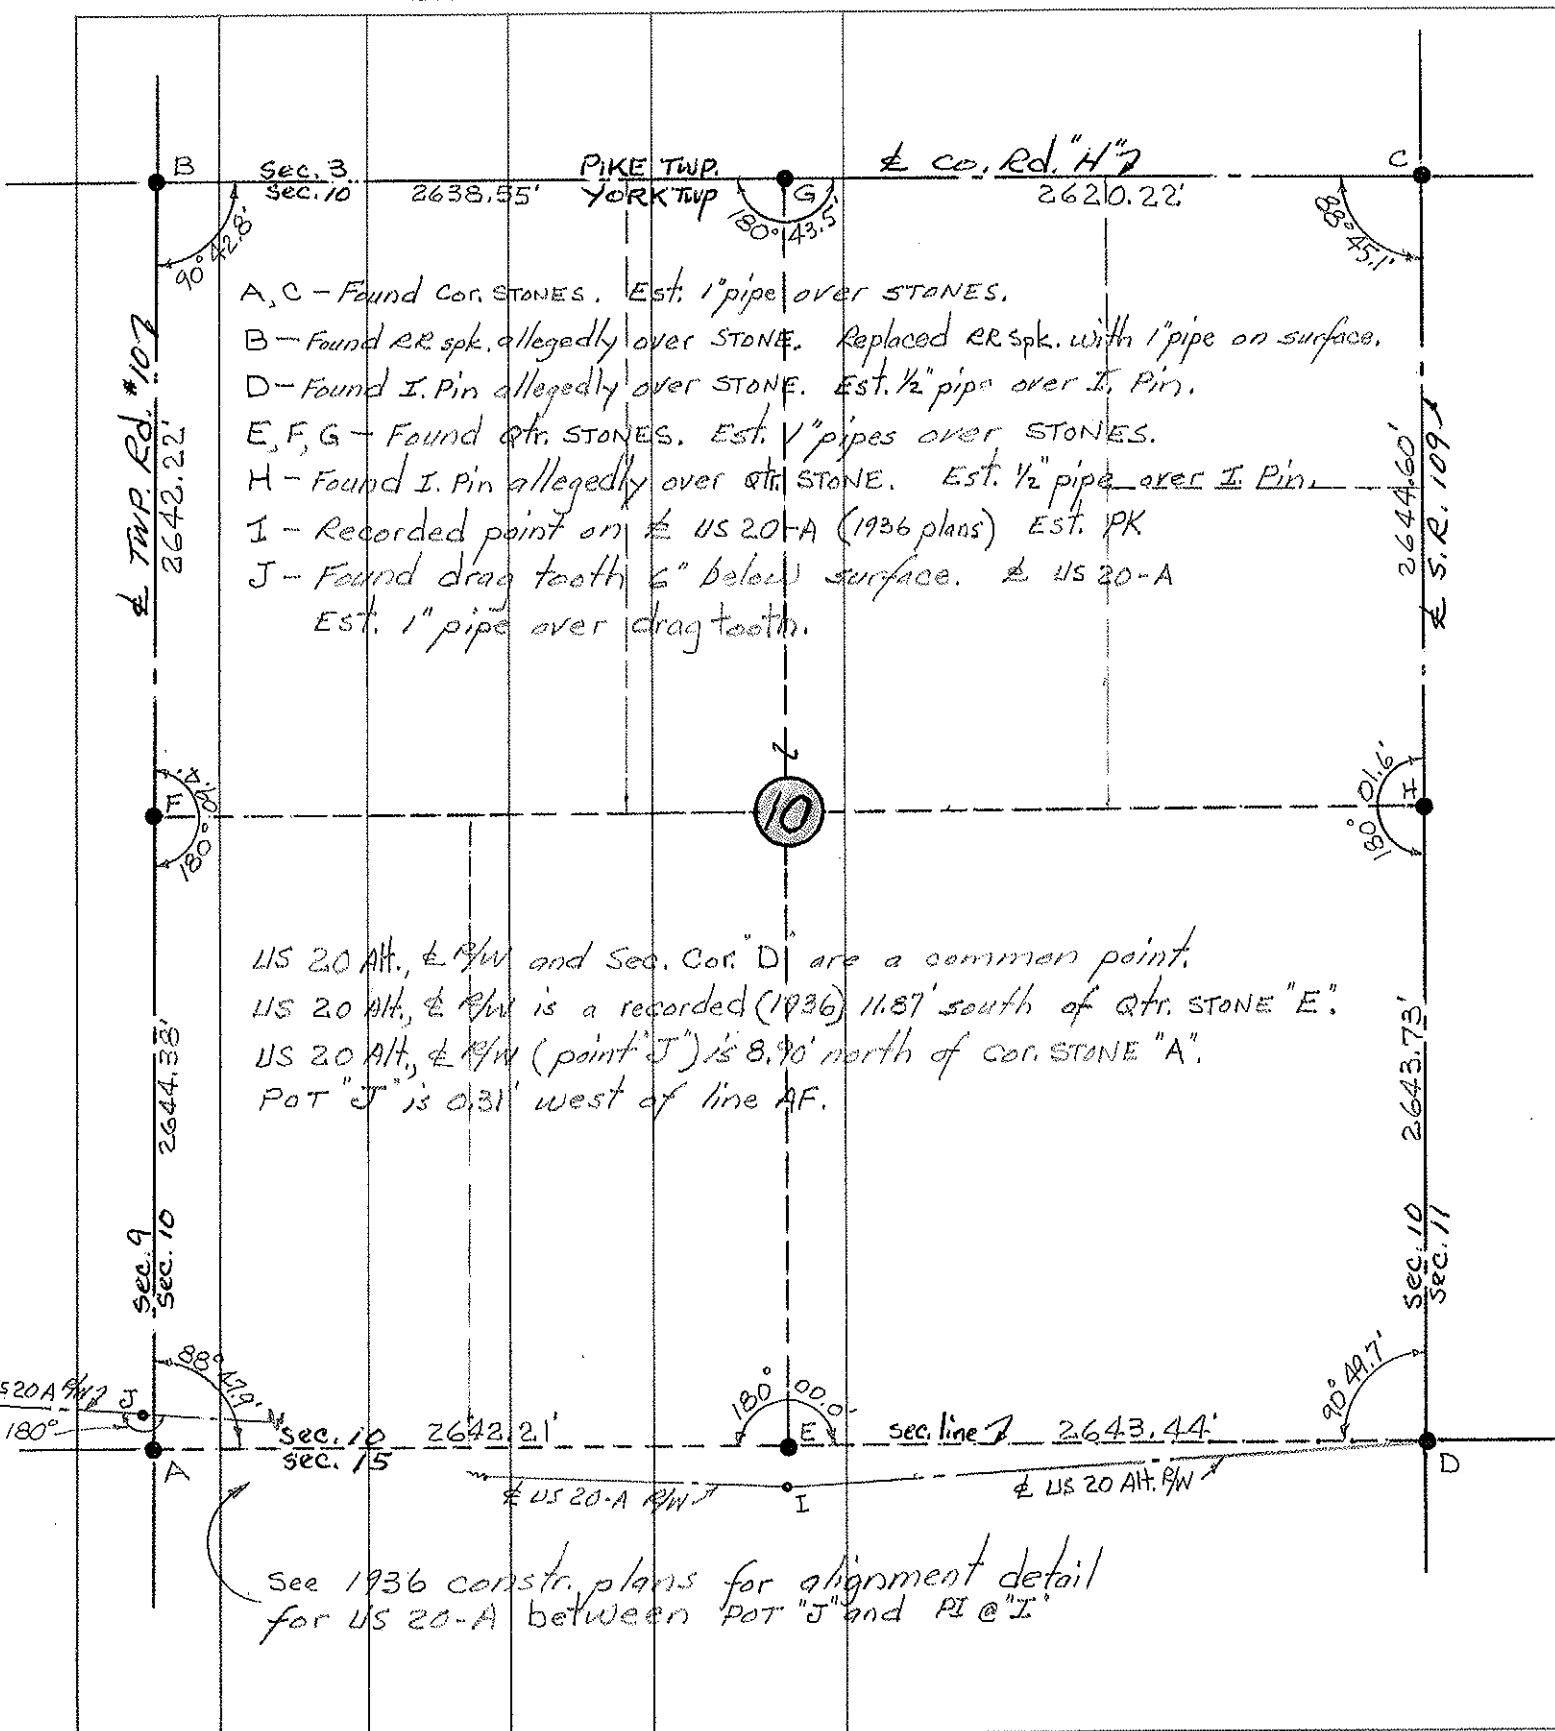 B
Sec. 3
Sec. 10
2638.55'
PIKE TWP.
YORK TWP
G
℄ Co. Rd. "H"
2620.22'
C
90° 42.8'
180° 43.5'
88° 45.1'
A, C - Found Cor. STONES. Est. 1" pipe over STONES.
B - Found RR spk. allegedly over STONE. Replaced RR spk. with 1" pipe on surface.
D - Found I. Pin allegedly over STONE. Est. 1/2" pipe over I. Pin.
E, F, G - Found Qtr. STONES. Est. 1" pipes over STONES.
H - Found I. Pin allegedly over Qtr. STONE. Est. 1/2" pipe over I. Pin.
I - Recorded point on ℄ US 20-A (1936 plans) Est. PK
J - Found drag tooth 6" below surface. ℄ US 20-A
Est. 1" pipe over drag tooth.
℄ TWP. Rd. #10-7
2642.22'
2644.60'
℄ S.R. 109
F
180° 09.4'
10
H
180° 01.6'
US 20 Alt., ℄ R/W and Sec. Cor. "D" are a common point.
US 20 Alt., ℄ R/W is a recorded (1936) 11.87' south of Qtr. STONE "E".
US 20 Alt., ℄ R/W (point "J") is 8.90' north of cor. STONE "A".
POT "J" is 0.31' west of line AF.
2644.38'
2643.73'
Sec. 9
Sec. 10
Sec. 10
Sec. 11
88° 47.9'
180° 00.0'
90° 49.7'
S 20 A R/W
J
180°
A
Sec. 10
Sec. 15
2642.21'
E
sec. line
2643.44'
D
℄ US 20-A R/W
I
℄ US 20 Alt. R/W
See 1936 constr. plans for alignment detail
for US 20-A between POT "J" and PI @ "I"